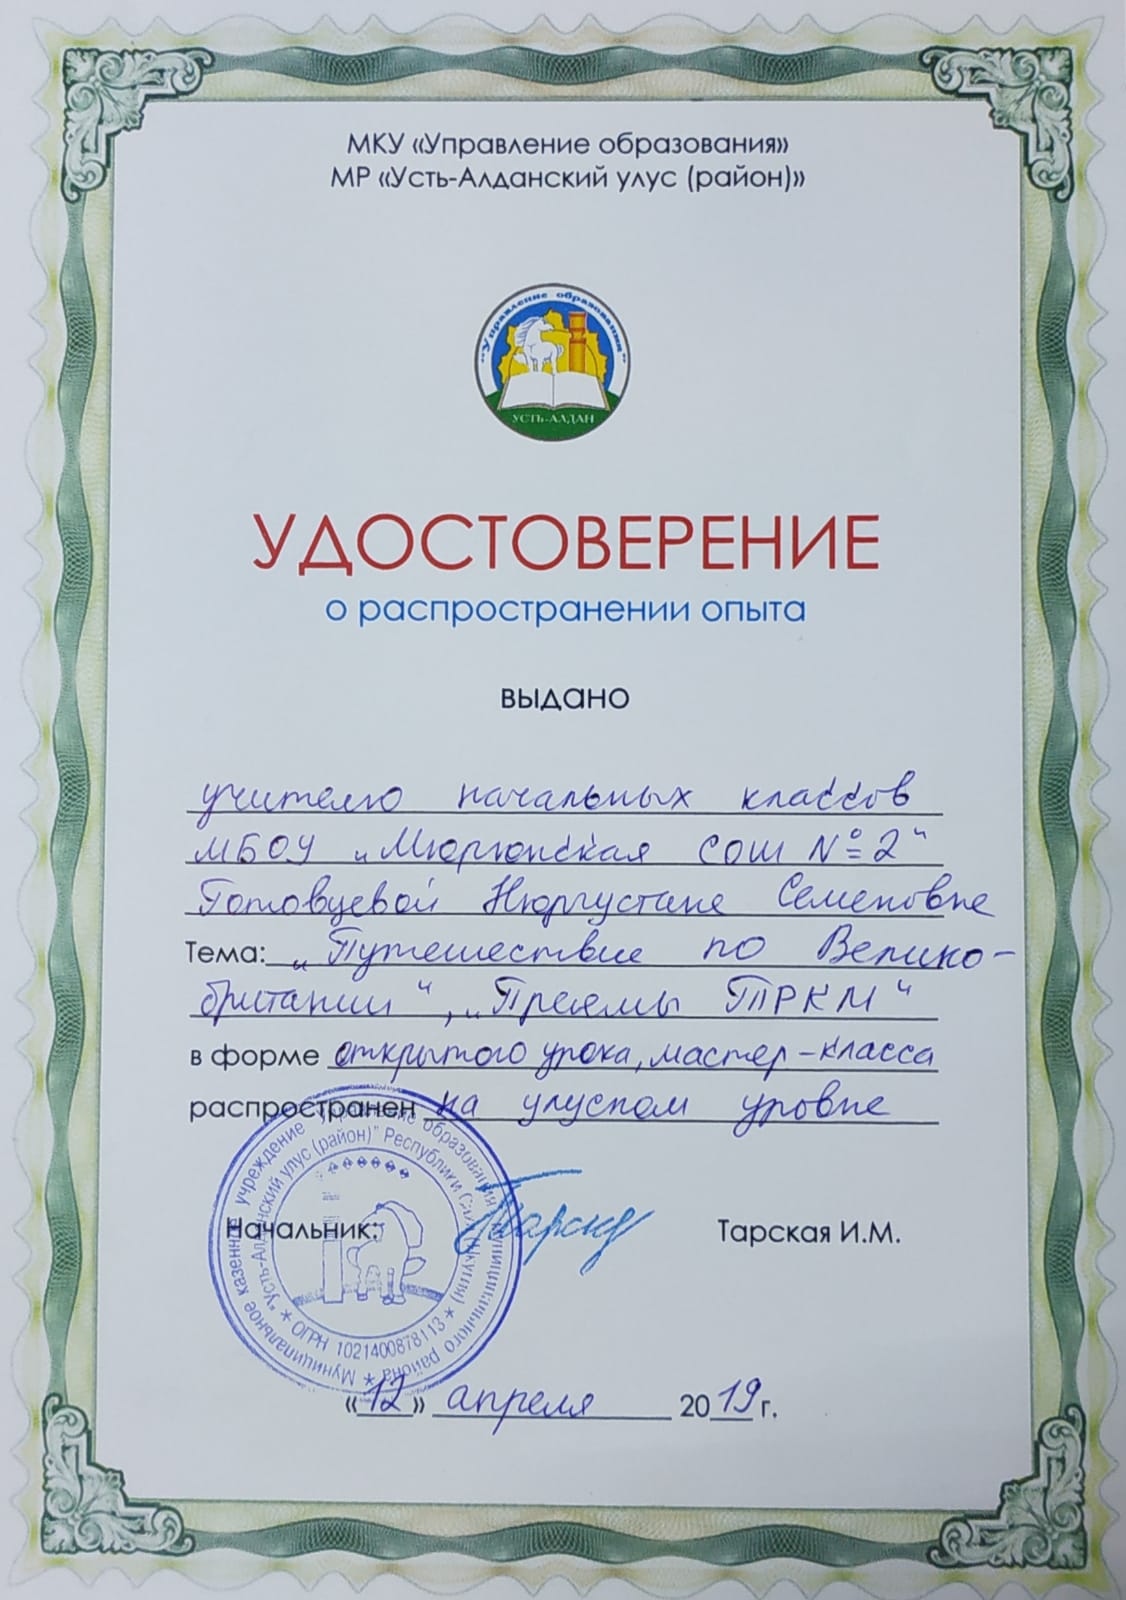 МКУ «Управление образования»
МР «Усть-Алданский улус (район)»
«Управление образования»
УСТЬ-АЛДАН
УДОСТОВЕРЕНИЕ
о распространении опыта
выдано
учителю начальных классов
МБОУ „Мюрюнская СОШ №2“
Готовцевой Нюргустане Семеновне
Тема: „Путешествие по Велико-
британии“, „Приемы ТРКМ“
в форме открытого урока, мастер-класса
распространен на улусном уровне
Начальник: Тарская И.М.
Муниципальное казенное учреждение "Управление образования муниципального района
"Усть-Алданский улус (район)" Республики Саха (Якутия) * ОГРН 1021400878113 *
«12» апреля 2019 г.